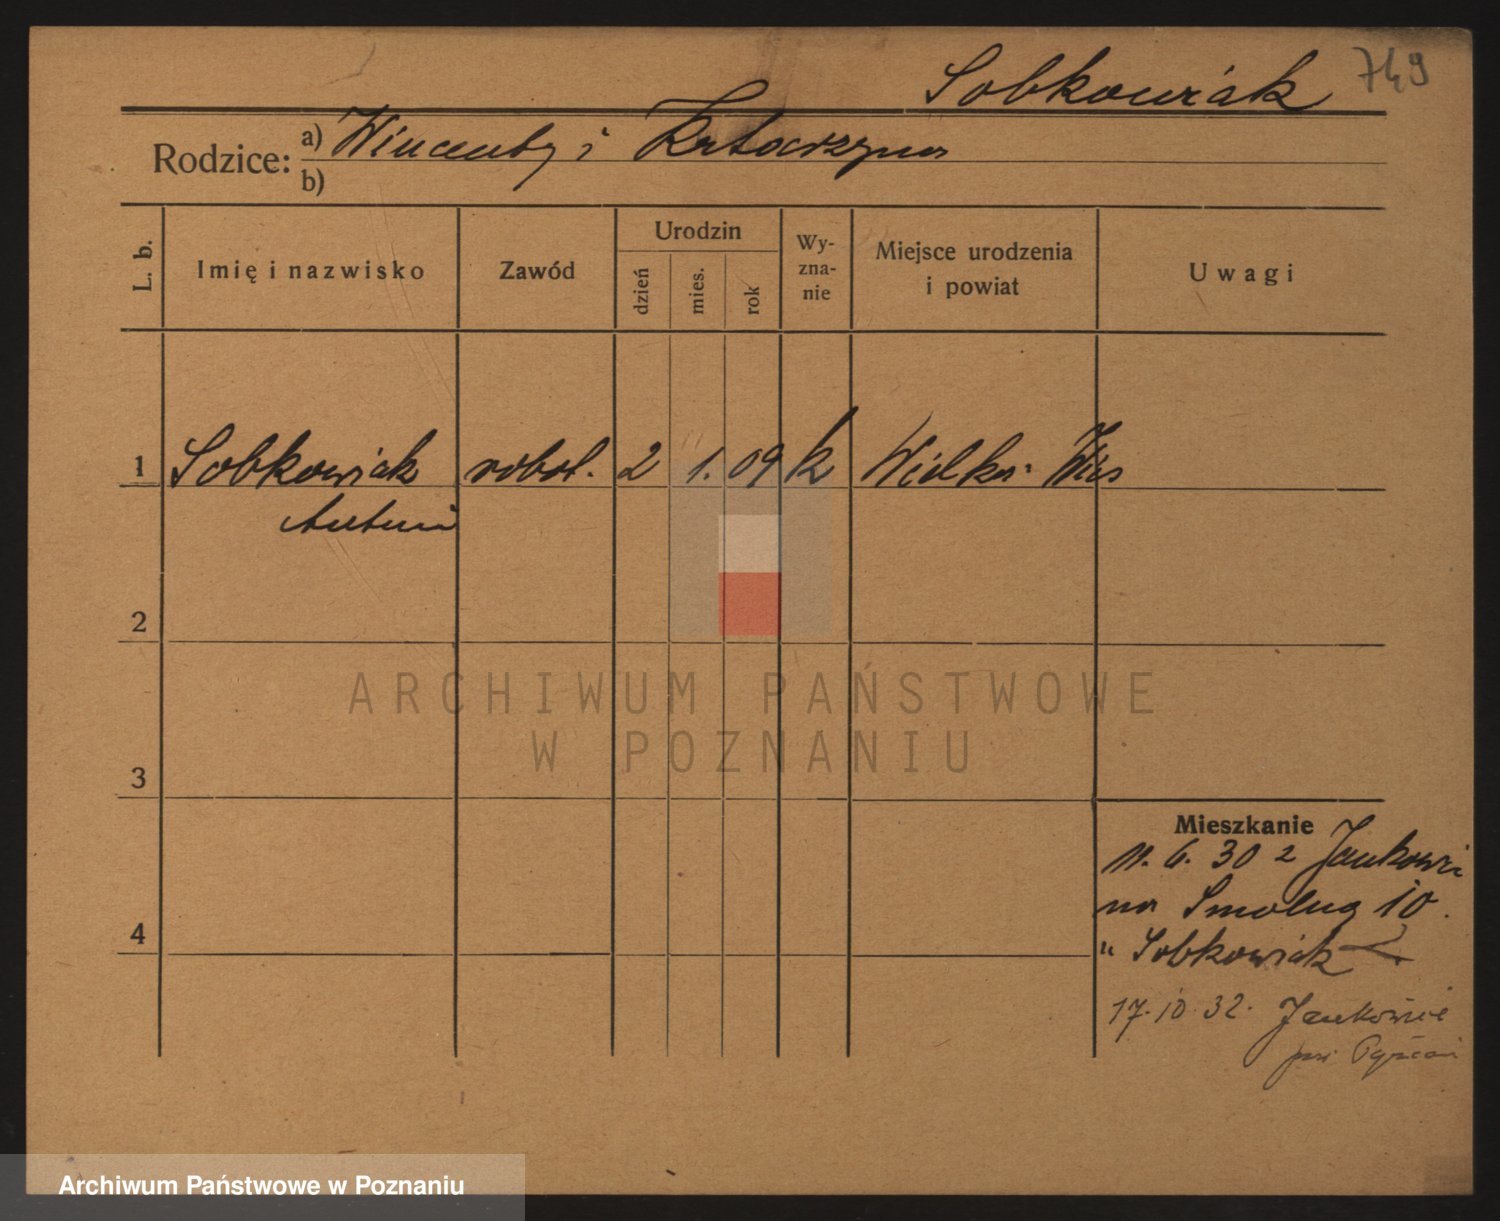 Sobkowiak 749
Rodzice: a) Wincenty i Katarzyna
b)
L. b. Imię i nazwisko Zawód Urodzin dzień mies. rok Wyznanie Miejsce urodzenia i powiat Uwagi
1 Sobkowiak robot. 2 1. 09 k Wielka Wieś
Antoni
2
ARCHIWUM PAŃSTWOWE
W POZNANIU
3
Mieszkanie
11. 6. 30 z Jankowic
na Smolną 10.
4 " Sobkowiak
17. 10. 32. Jankowice
Archiwum Państwowe w Poznaniu